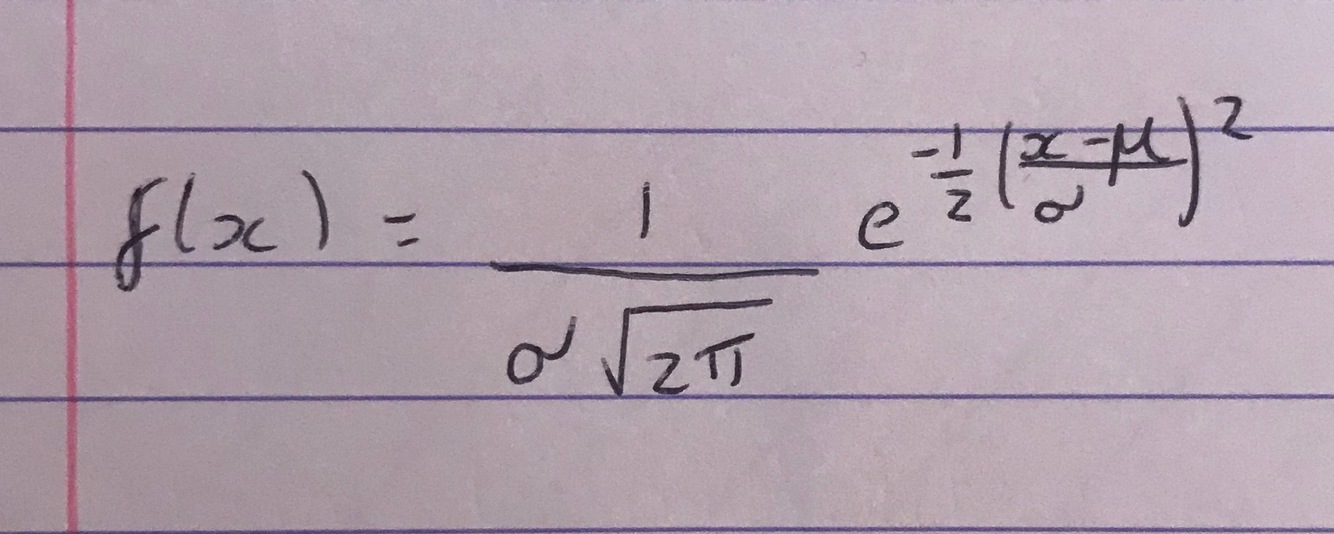 f(x) = \frac{1}{σ\sqrt{2π}} e^{-\frac{1}{2}(\frac{x-μ}{σ})^2}